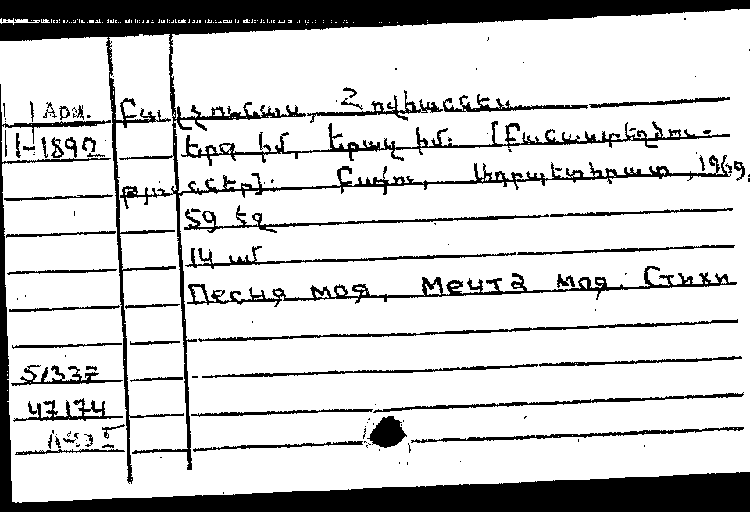 Арм. Բալչունաս, Հովհաննես
II-1892 Երգ իմ, երազ իմ: [Բանաստեղծու-
թյուններ]: Բաքու, Ադրպետհրատ, 1969,
59 էջ
14 սմ
Песня моя, мечта моя. Стихи
51337
47174